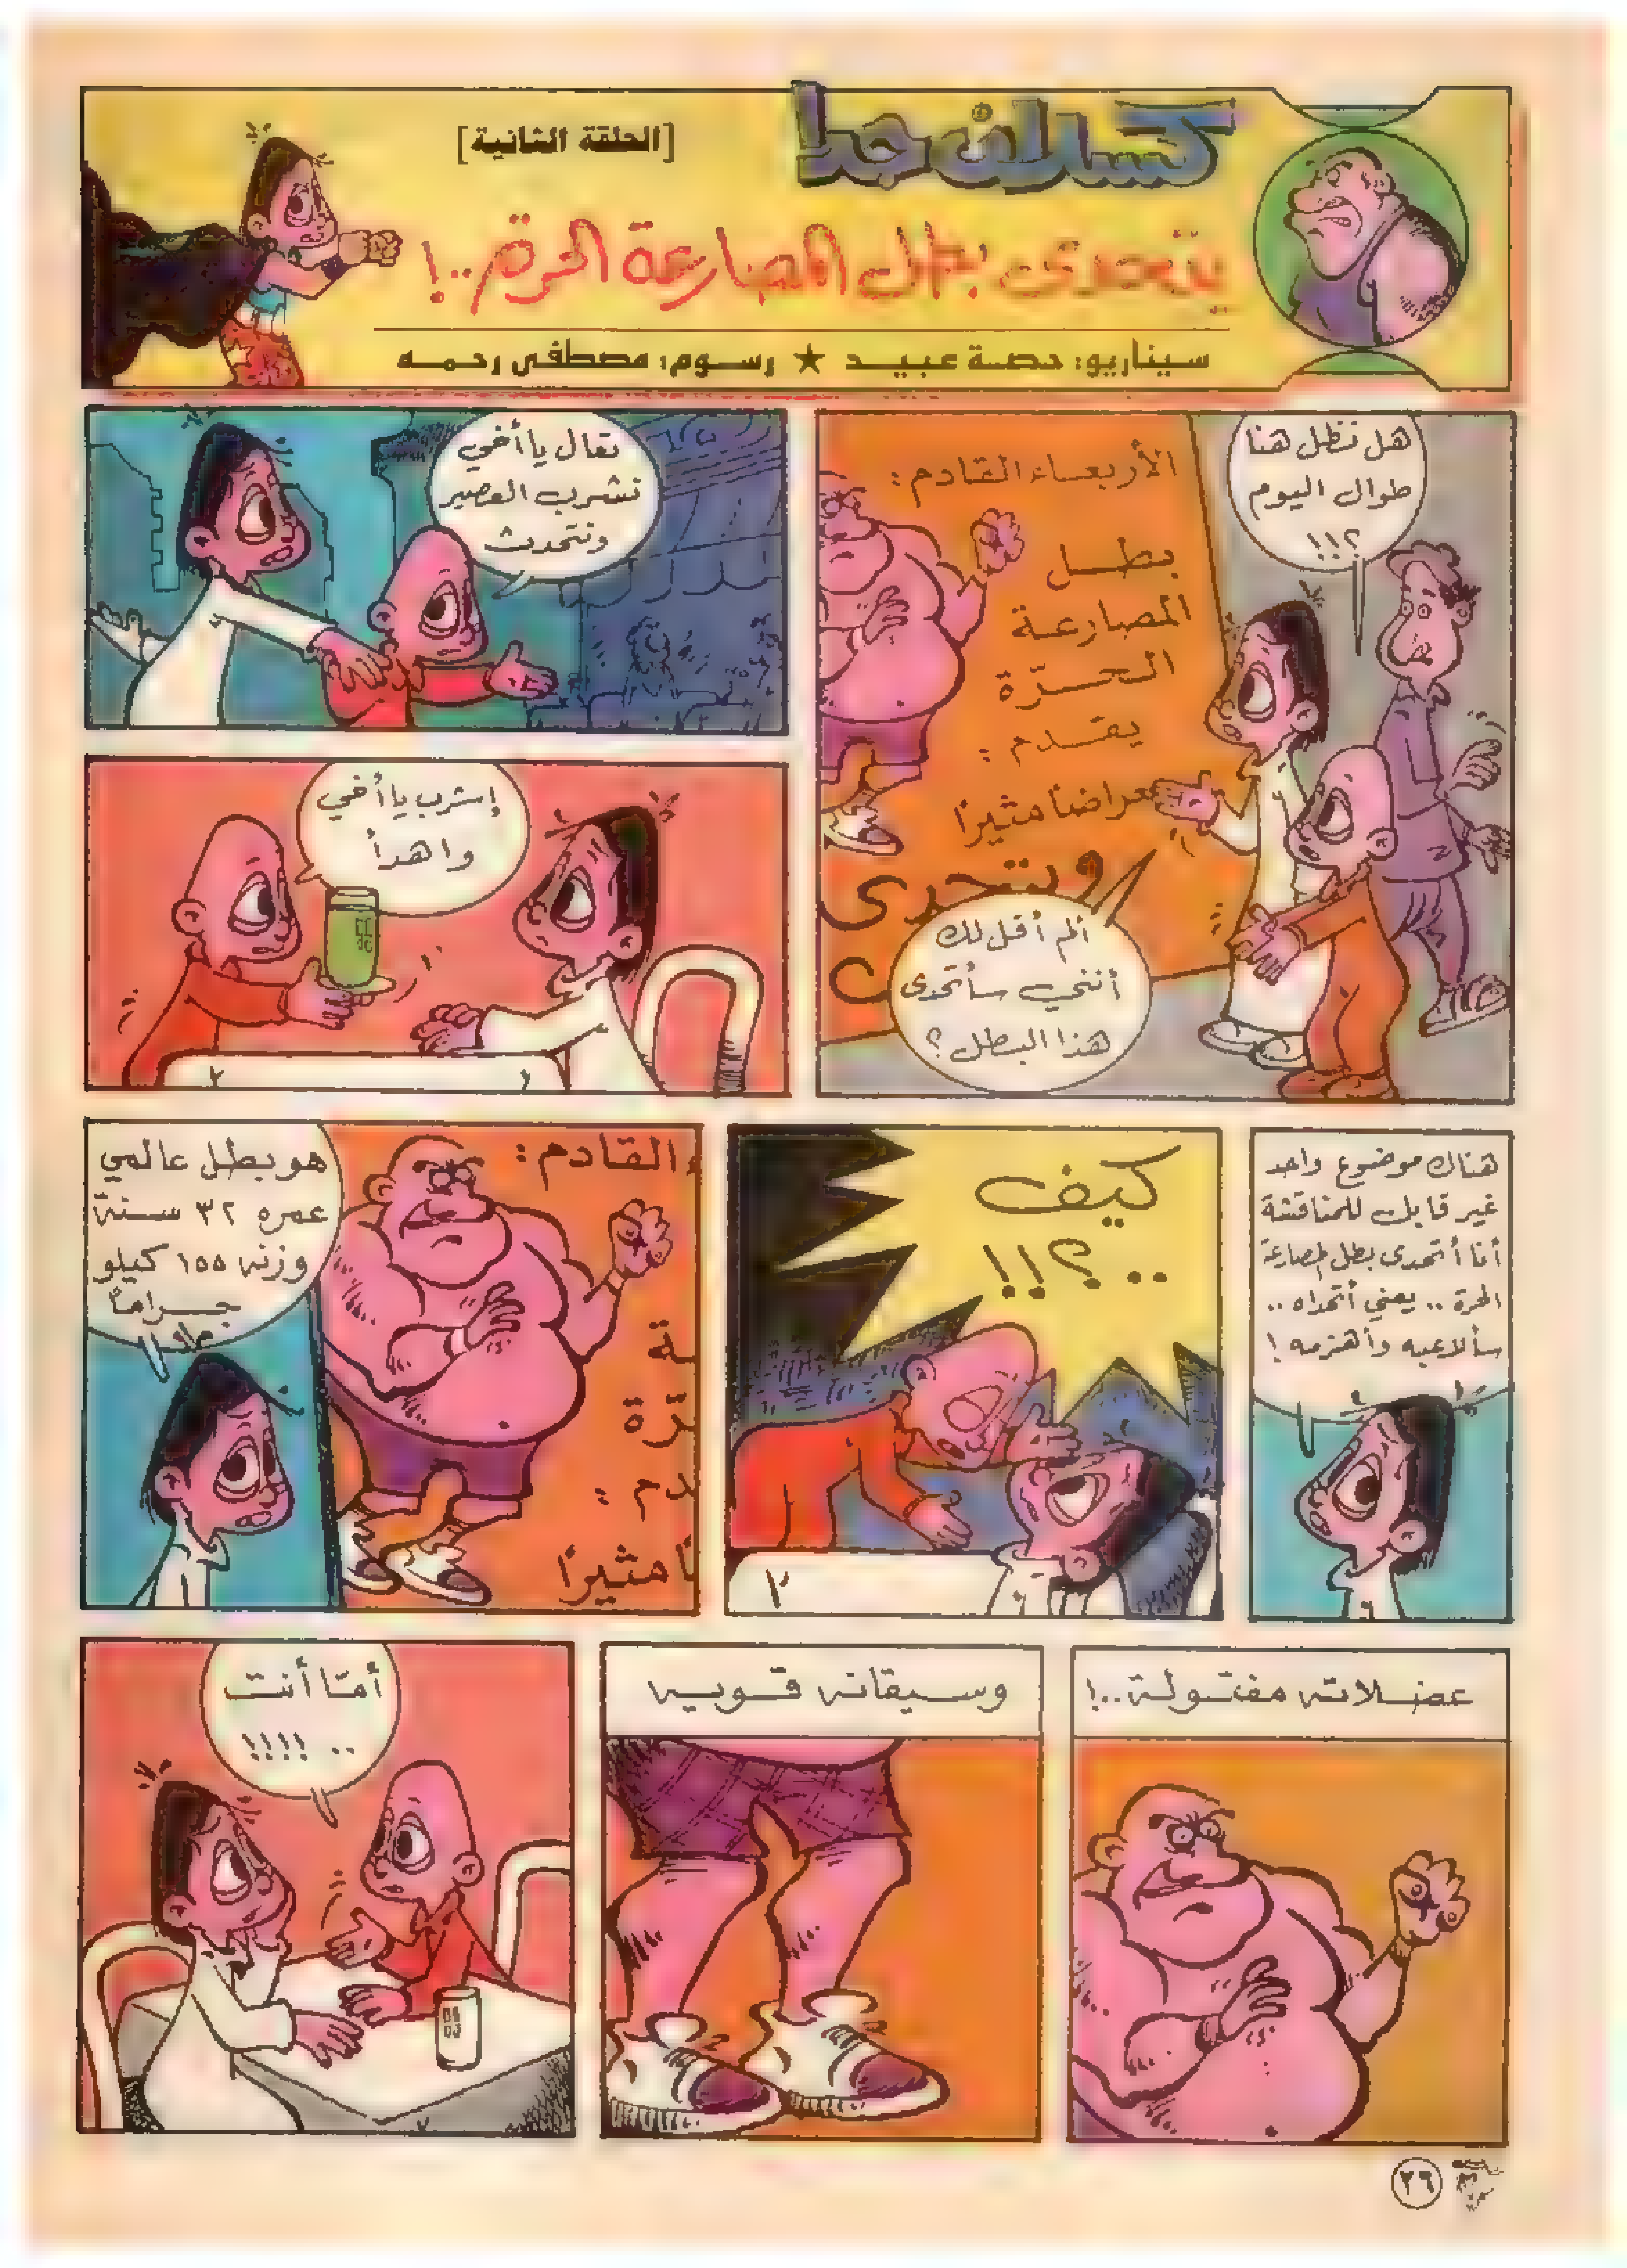 كسلان جدا
[الحلقة الثانية]
يتحدى بطل المصارعة الحرة..!
سيناريو: حصة عبيد ★ رسوم: مصطفى رحمه
هل نظل هنا
طوال اليوم
؟!!
الأربعاء القادم:
بطل
المصارعة
الحرّة
يقدم:
عراضًا مثيرًا
ويتحدى
ألم أقل لك
أنني سأتحدى
هذا البطل؟
تعال يا أخي
نشرب العصير
ونتحدث
إشرب يا أخي
واهدأ
هناك موضوع واحد
غير قابل للمناقشة
أنا أتحدى بطل المصارعة
الحرة .. يعني أتحداه ..
سألاعبه وأهزمه !
كيف
..؟!!
هو بطل عالمي
عمره ٣٢ سنة
وزنه ١٥٥ كيلو
جرامًا
القادم:
ـة
ـرّة
دم:
ـًا مثيرًا
عضلاته مفتولة..!
وسيقانه قويه
أمّا أنت
.. !!!!
٢٦